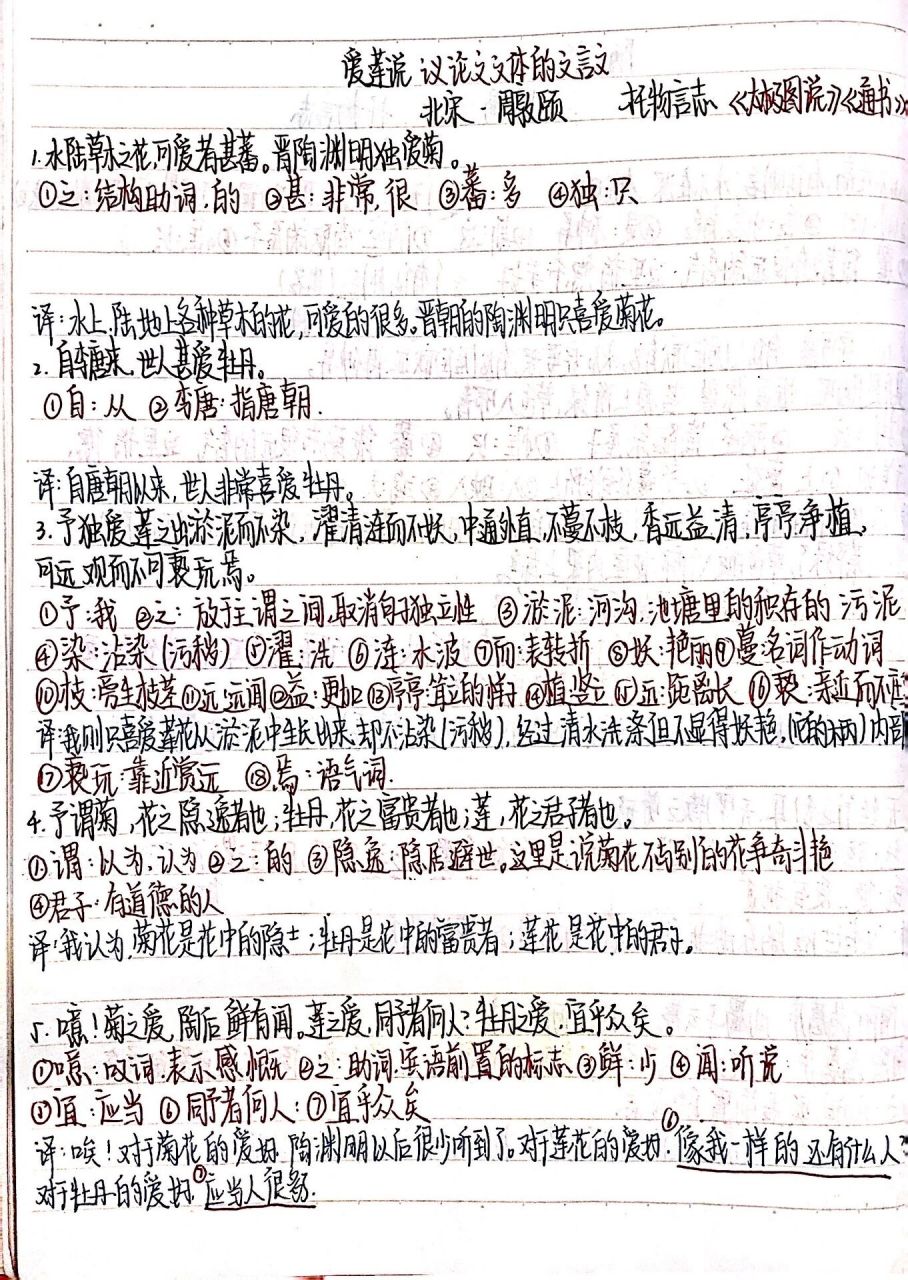 爱莲说 议论文文体的文言文
北宋·周敦颐 托物言志 《太极图说》《通书》
1.水陆草木之花,可爱者甚蕃。晋陶渊明独爱菊。
①之:结构助词,的 ②甚:非常,很 ③蕃:多 ④独:只
译:水上、陆地上各种草木的花,可爱的很多。晋朝的陶渊明只喜爱菊花。
2.自李唐来,世人甚爱牡丹。
①自:从 ②李唐:指唐朝.
译:自唐朝以来,世人非常喜爱牡丹。
3.予独爱莲之出淤泥而不染,濯清涟而不妖,中通外直,不蔓不枝,香远益清,亭亭净植,
可远观而不可亵玩焉。
①予:我 ②之:放于主谓之间,取消句子独立性 ③淤泥:河沟、池塘里的积存的污泥
④染:沾染(污秽) ⑤濯:洗 ⑥涟:水波 ⑦而:表转折 ⑧妖:艳丽⑨蔓名词作动词
⑩枝:旁生枝茎⑪远:远闻⑫益:更加⑬亭亭:耸立的样子⑭植:竖立⑮远:距离长 ⑯亵:亲近而不庄
译:我则只喜爱莲花从淤泥中生长出来,却不沾染(污秽),经过清水洗涤但不显得妖艳,(它的柄)内部
⑰亵玩:靠近赏玩 ⑱焉:语气词.
4.予谓菊,花之隐逸者也;牡丹,花之富贵者也;莲,花之君子者也。
①谓:以为,认为 ②之:的 ③隐逸:隐居避世。这里是说菊花不与别的花争奇斗艳
④君子:有道德的人
译:我认为,菊花是花中的隐士;牡丹是花中的富贵者;莲花是花中的君子。
5.噫!菊之爱,陶后鲜有闻。莲之爱,同予者何人?牡丹之爱,宜乎众矣。
①噫:叹词,表示感慨 ②之:助词,宾语前置的标志 ③鲜:少 ④闻:听说
⑤宜:应当 ⑥同予者何人: ⑦宜乎众矣
译:唉!对于菊花的爱好,陶渊明以后很少听到了。对于莲花的爱好,⑥像我一样的还有什么人?
对于牡丹的爱好,⑦应当人很多.